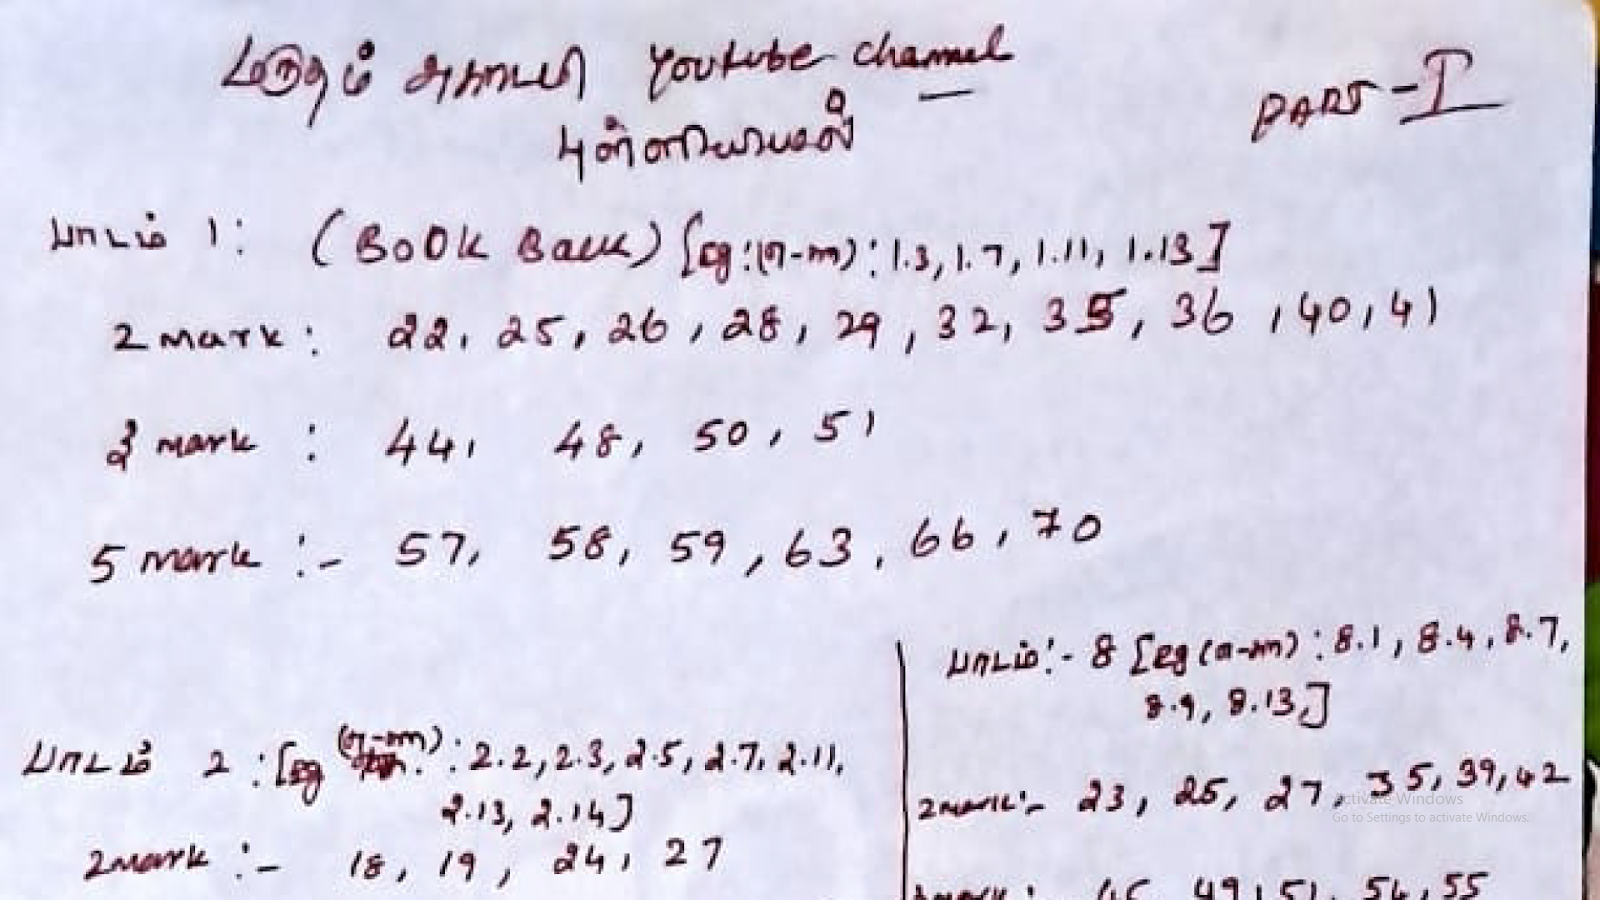 மருதம் அகாடமி Youtube channel
PART-I
புள்ளியியல்
பாடம் 1: (BOOK Back) [eg:(எ-டு): 1.3, 1.7, 1.11, 1.13]
2 mark: 22, 25, 26, 28, 29, 32, 35, 36, 40, 41
3 mark : 44, 48, 50, 51
5 mark :- 57, 58, 59, 63, 66, 70
பாடம் 2 :[eg (எ-டு): 2.2, 2.3, 2.5, 2.7, 2.11,
2.13, 2.14]
2mark :- 18, 19, 24, 27
பாடம்:- 8 [eg (எ-டு): 8.1, 8.4, 8.7,
8.9, 8.13,]
2mark:- 23, 25, 27, 35, 39, 42
49, 51, 54, 55
Activate Windows
Go to Settings to activate Windows.